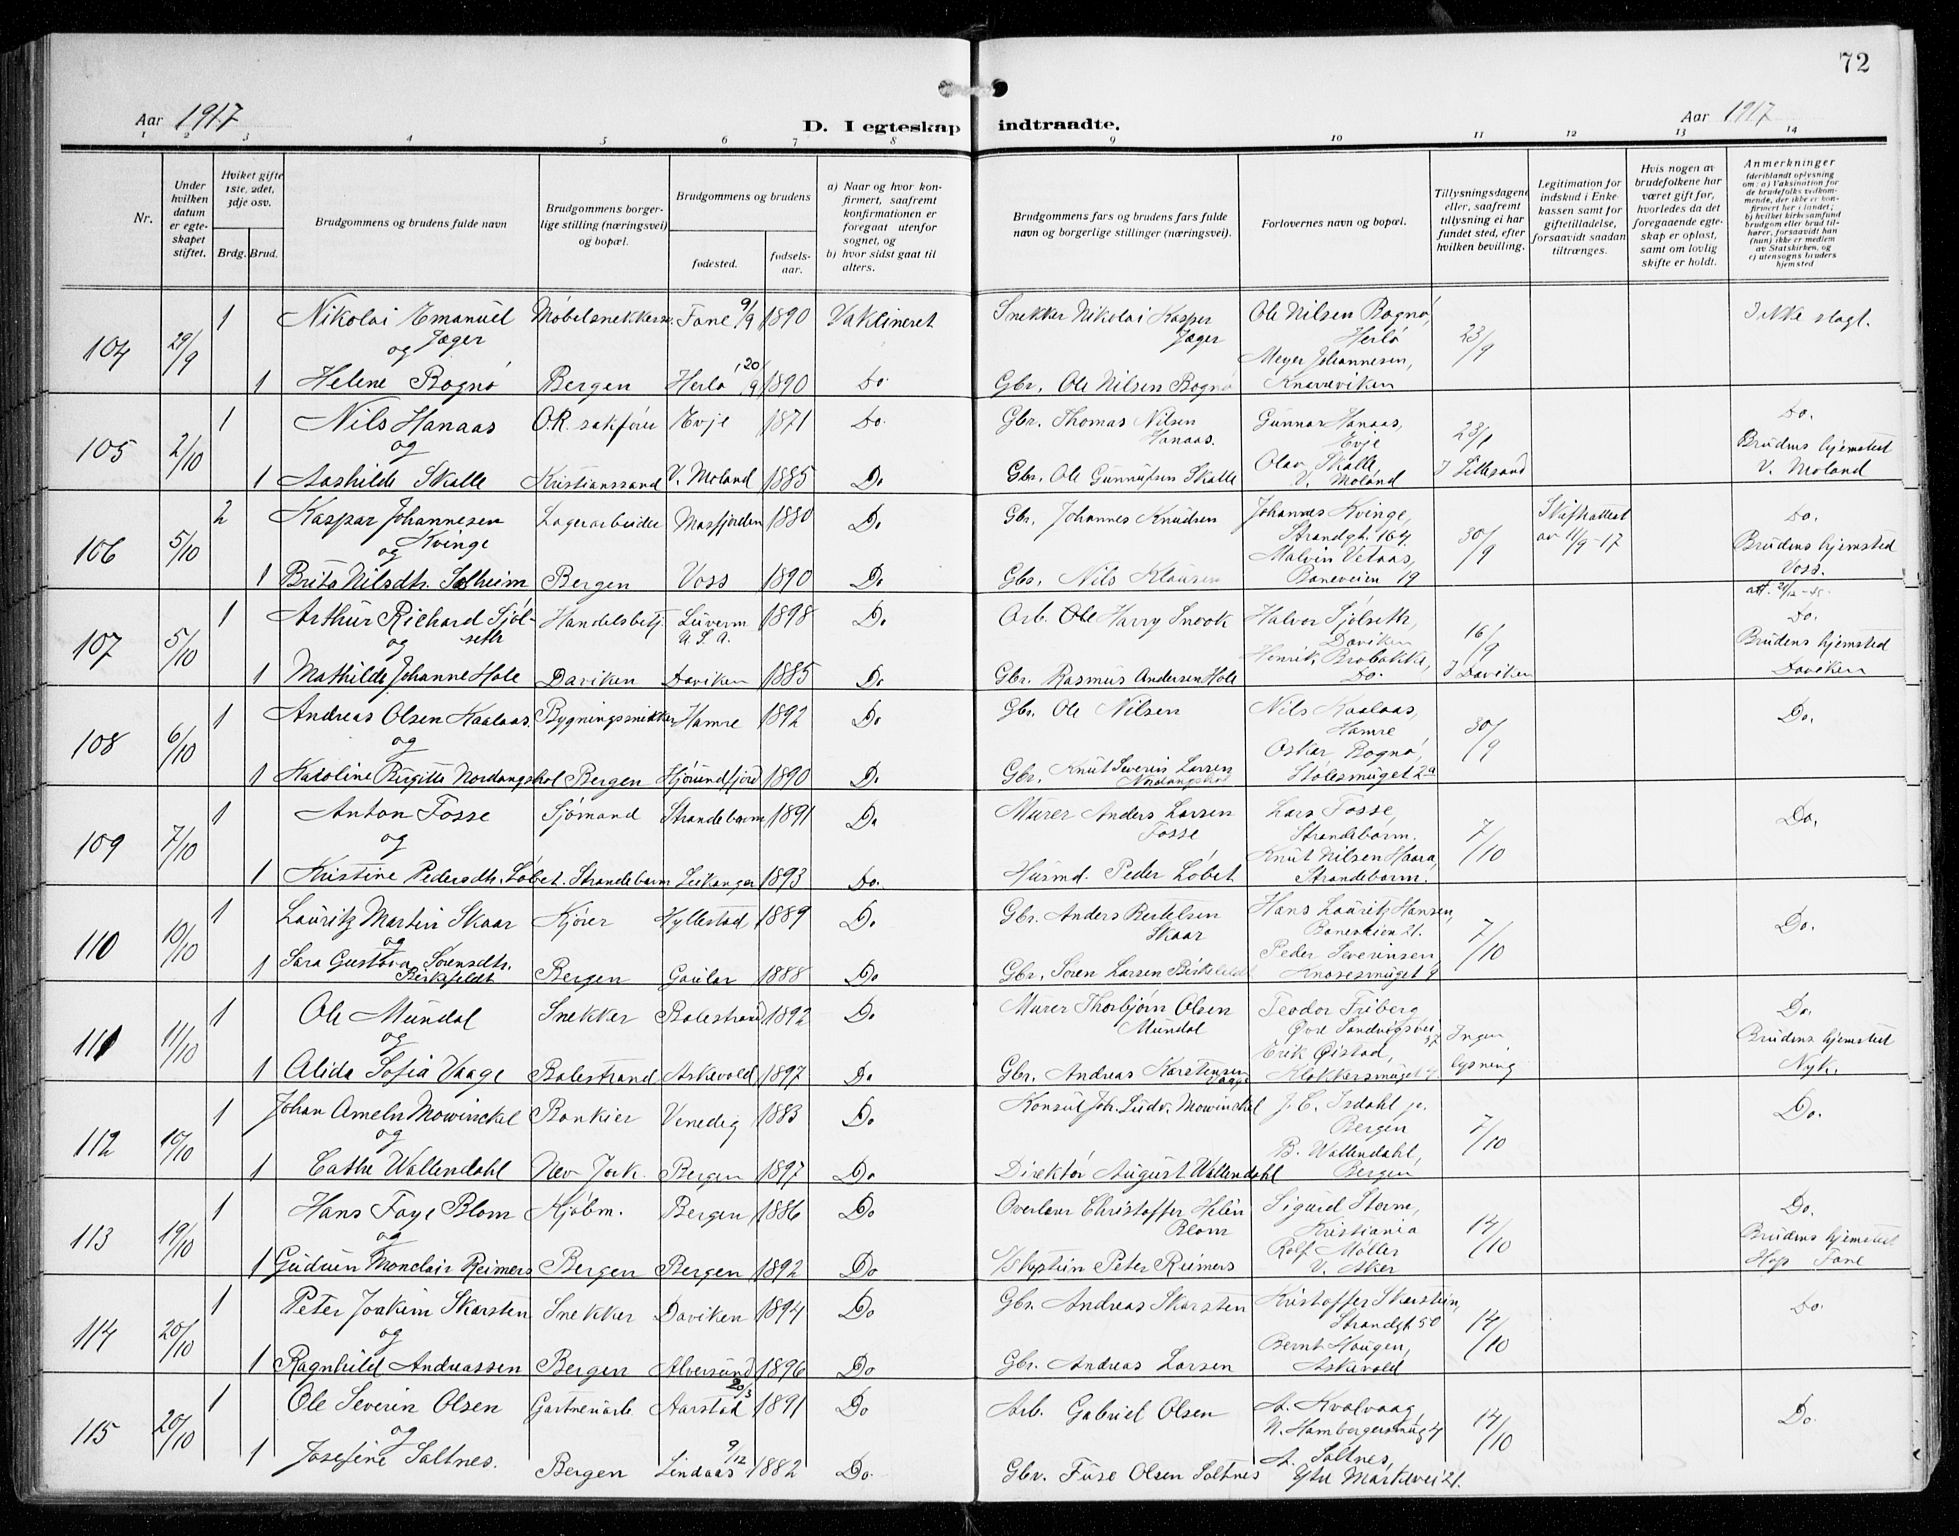 72
Aar 1917
D. I egteskap indtraadte.
Aar 1917
1 2 3 4 5 6 7 8 9 10 11 12 13 14
Nr.
Under hvilken datum er egteskapet stiftet.
Hviket gifte 1ste, 2det, 3dje osv.
Brdg. Brud.
Brudgommens og brudens fulde navn
Brudgommens borgerlige stilling (næringsvei) og bopæl.
Brudgommens og brudens
fødested.
fødselsaar.
a) Naar og hvor konfirmert, saafremt konfirmationen er foregaat utenfor sognet, og
b) hvor sidst gaat til alters.
Brudgommens fars og brudens fars fulde navn og borgerlige stillinger (næringsvei).
Forlovernes navn og bopæl.
Tillysningsdagene eller, saafremt tillysning ei har fundet sted, efter hvilken bevilling.
Legitimation for indskud i Enkekassen samt for giftetilladelse, forsaavidt saadan tiltrænges.
Hvis nogen av brudefolkene har været gift før, hvorledes da det foregaaende egteskap er opløst, samt om lovlig skifte er holdt.
Anmerkninger
(deriblandt oplysning om: a) Vaksination for de brudefolks vedkommende, der ikke er konfirmert her i landet; b) hvilket kirkesamfund brudgom eller brud tilhører, forsaavidt han (hun) ikke er medlem av Statskirken, og c) utensogns bruders hjemsted
104 29/9 1 Nikolai Emanuel Jæger Møbelsnekker Fane 9/9 1890 Vaksineret Snekker Nikolai Kasper Jæger Ole Nilsen Bognø, Herlø 23/9 Ikke slegt.
og
1 Helene Bognø Bergen Herlø 20/9 1890 Do Gbr. Ole Nilsen Bognø Meyer Johannesen, Knarreviken
105 2/10 1 Nils Hanaas O.R. sakfører Evje 1871 Do Gbr. Thomas Nilsen Hanaas. Gunnar Hanaas, Evje 23/9 Do.
og
1 Aashilde Skalle Kristianssand V. Moland 1885 Do Gbr. Ole Gunnufsen Skalle Olav Skalle V. Moland I Lillesand Brudens hjemsted V. Moland
106 5/10 2 Kaspar Johannesen Kvinge Lagerarbeider Masfjorden 1880 Do Gbr. Johannes Knudsen Johannes Kvinge, Strandgt. 164 30/9 Skifteattest av 11/9-17 Do.
og
1 Brita Nilsdtr. Solheim Bergen Voss 1890 Do Gbr. Nils Klausen Malvin Vetaas, Baneveien 19 Brudens hjemsted Voss.
107 5/10 1 Arthur Richard Sjølseth Handelsbetj. Luverm U.S.A. 1898 Do Arb. Ole Harry Snook Halvor Sjølseth, Daviken 16/9 Do.
og
1 Mathilde Johanne Hole Daviken Daviken 1885 Do Gbr. Rasmus Andersen Hole Henrik Brobakke, Do. I Daviken Brudens hjemsted Daviken
108 6/10 1 Andreas Olsen Kaalaas Bygningssnikker Hamre 1892 Do Gbr. Ole Nilsen Nils Kaalaas, Hamre 30/9 Do.
og
1 Karoline Birgitte Nordangshol Bergen Hjørundfjord 1890 Do Gbr. Knut Severin Larsen Nordangshol Oskar Bognø, Stølesmuget 2a
109 7/10 1 Anton Fosse Sjømand Strandebarm 1891 Do Murer Anders Larsen Fosse Lars Fosse, Strandebarm. 7/10 Do.
og
1 Kristine Pedersdtr. Løbet. Strandebarm Leikanger 1893 Do. Husmd. Peder Løbet Knut Nilsen Haara, Strandebarm.
110 10/10 1 Lauritz Martin Skaar Kjører Hyllestad 1889 Do Gbr. Anders Bertelsen Skaar Hans Lauritz Hansen, Baneveien 21. 7/10 Do.
og
1 Sara Gustava Sørensdtr. Birkefeldt Bergen Gaular 1888 Do Gbr. Søren Larsen Birkefeldt Peder Severinsen Knøsesmuget 9
111 11/10 1 Ole Mundal Snekker Balestrand 1892 Do Murer Thorbjørn Olsen Mundal Teodor Friberg, Øvre Sandvegsvei 37 Ingen lysning Do.
og
1 Alida Sofia Vaage Balestrand Askevold 1897 Do Gbr. Andreas Karstensen Vaage Erik Øistad, Klokkersmuget 4. Brudens hjemsted Nyk.
112 10/10 1 Johan Ameln Mowinckel Bankier Venedig 1883 Do Konsul Joh. Ludv. Mowinckel J. C. Isdahl jr. Bergen 7/10 Do.
og
1 Cathe Wallendahl New York. Bergen 1897 Do Direktør August Wallendahl B. Wallendahl, Bergen
113 19/10 1 Hans Faye Blom Kjøbm. Bergen 1886 Do Overlærer Christoffer Helin Blom Sigurd Sterne, Kristiania 14/10 Do.
og
1 Gudrun Monclair Reimers Bergen Bergen 1892 Do Skpskptin Peter Reimers Rolf Møller V. Aker Brudens hjemsted Hop Fane
114 20/10 1 Peter Joakim Skarsten Snekker Daviken 1894 Do Gbr. Andreas Skarsten Kristoffer Skarstein, Strandgt 50 14/10 Do.
og
1 Ragnhild Andreassen Bergen Alversund 1896 Do Gbr. Andreas Larsen Bernt Haugen, Askevold
115 20/10 1 Ole Severin Olsen Gartnerarb. Aarstad 20/3 1891 Do Arb. Gabriel Olsen A. Kvalvaag, N. Hambergersmug 4 14/10 Do.
og
1 Josefine Saltnes. Bergen Lindaas 9/12 1882 Do. Gbr. Fuse Olsen Saltnes A. Saltnes, Ytre Markevei 21.